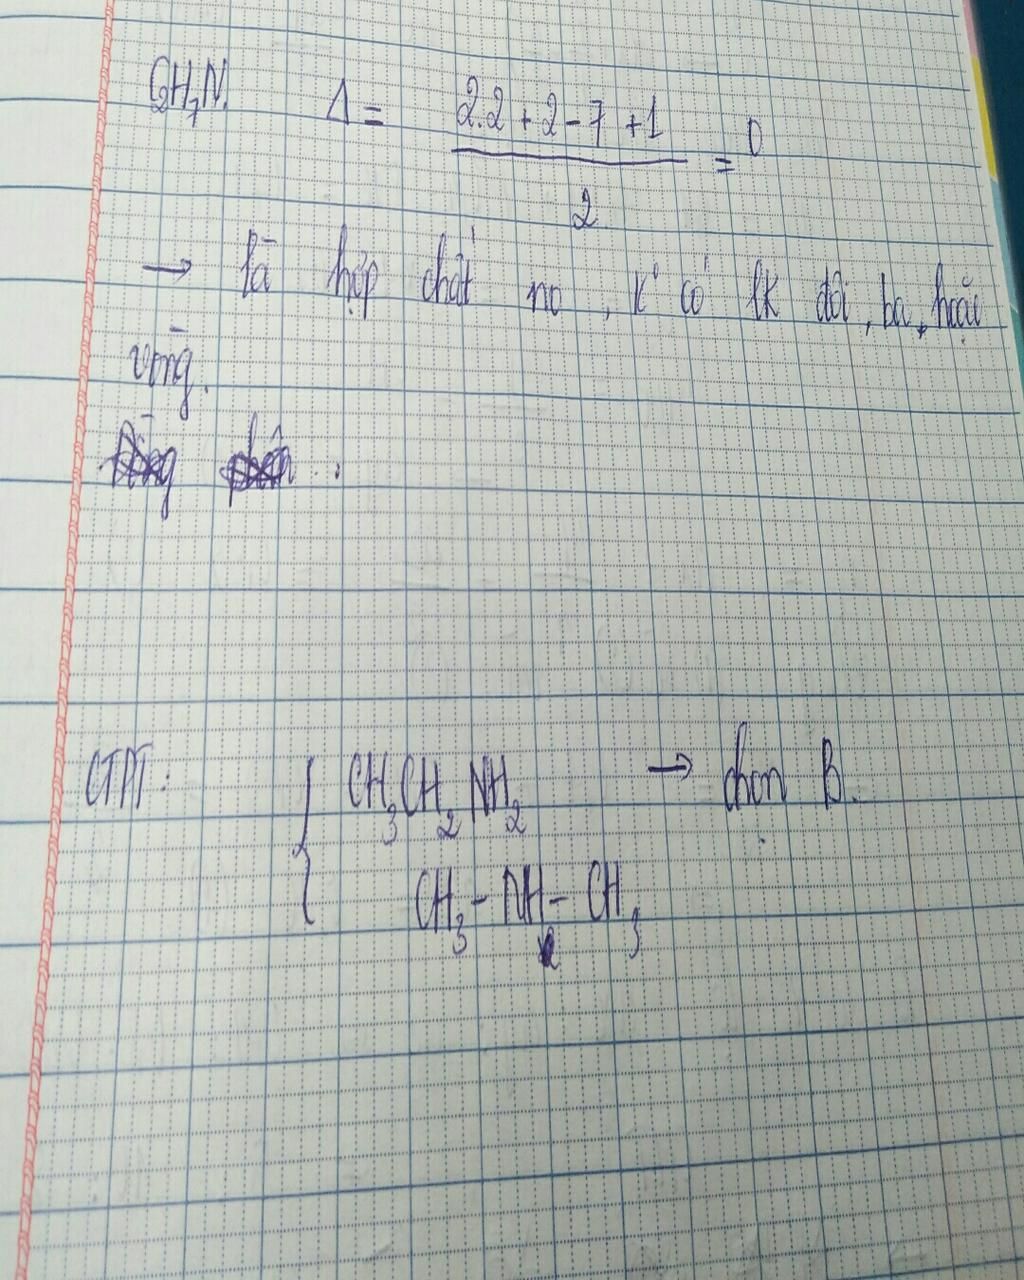 C₂H₇N. Δ = (2.2 + 2 - 7 + 1) / 2 = 0
→ là hợp chất no, k° có lk đôi, ba, hoặc
vòng.
CTPT: { CH₃CH₂NH₂ → chọn B.
CH₃ - NH - CH₃